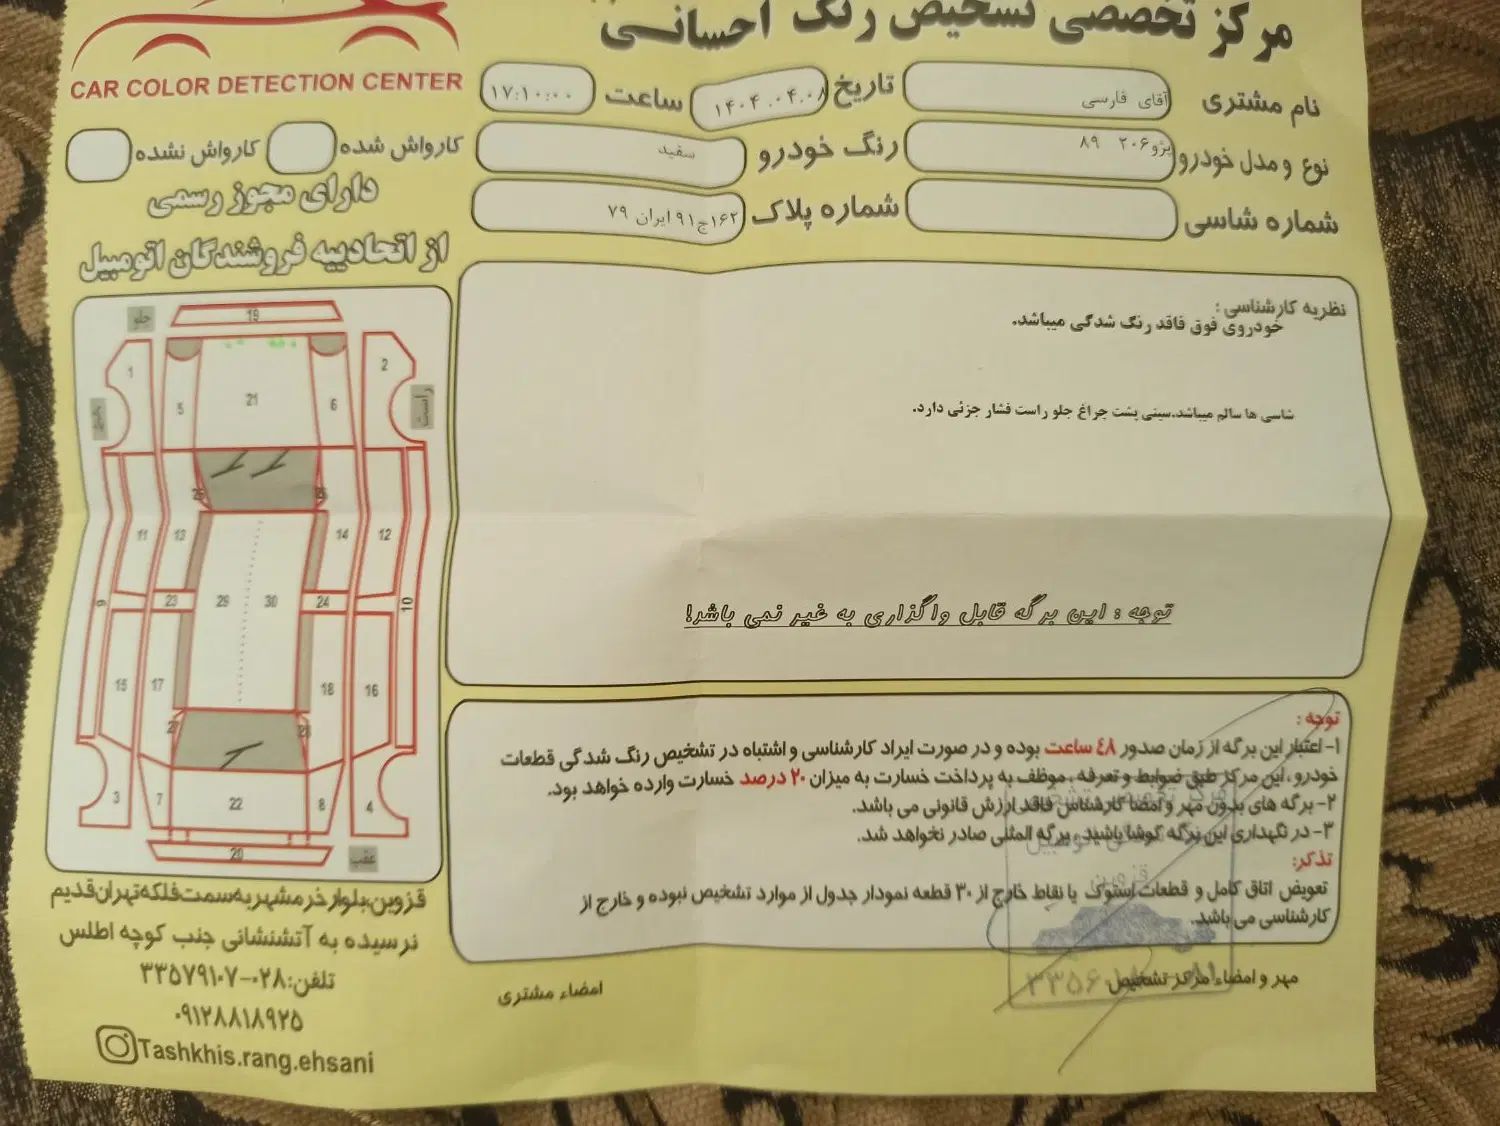 مرکز تخصصی تشخیص رنگ احسانی
CAR COLOR DETECTION CENTER
نام مشتری آقای فارسی تاریخ ۱۴۰۴.۰۴.۰۸ ساعت ۱۷:۱۰:۰۰
نوع و مدل خودرو پژو۲۰۶ ۸۹ رنگ خودرو سفید
شماره شاسی شماره پلاک ۱۶۲ج۹۱ ایران ۷۹
کارواش شده کارواش نشده
دارای مجوز رسمی
از اتحادییه فروشندگان اتومبیل
نظریه کارشناسی :
خودروی فوق فاقد رنگ شدگی میباشد.
شاسی ها سالم میباشد.سینی پشت چراغ جلو راست فشار جزئی دارد.
توجه : این برگه قابل واگذاری به غیر نمی باشد!
جلو
19
1
2
5
21
6
راست
25
26
11
13
14
12
9
23
29
30
24
10
15
17
18
16
27
28
3
7
22
8
4
20
عقب
توجه :
۱- اعتبار این برگه از زمان صدور ۴۸ ساعت بوده و در صورت ایراد کارشناسی و اشتباه در تشخیص رنگ شدگی قطعات
خودرو ، این مرکز طبق ضوابط و تعرفه ، موظف به پرداخت خسارت به میزان ۲۰ درصد خسارت وارده خواهد بود.
۲- برگه های بدون مهر و امضا کارشناس فاقد ارزش قانونی می باشد.
۳- در نگهداری این برگه کوشا باشید ، برگه المثنی صادر نخواهد شد.
تذکر:
تعویض اتاق کامل و قطعات استوک یا نقاط خارج از ۳۰ قطعه نمودار جدول از موارد تشخیص نبوده و خارج از
کارشناسی می باشد.
مهر و امضاء مرکز تشخیص
امضاء مشتری
قزوین،بلوار خرمشهر به سمت فلکه تهران قدیم
نرسیده به آتشنشانی جنب کوچه اطلس
تلفن:۰۲۸-۳۳۵۷۹۱۰۷
۰۹۱۲۸۸۱۸۹۲۵
Tashkhis.rang.ehsani